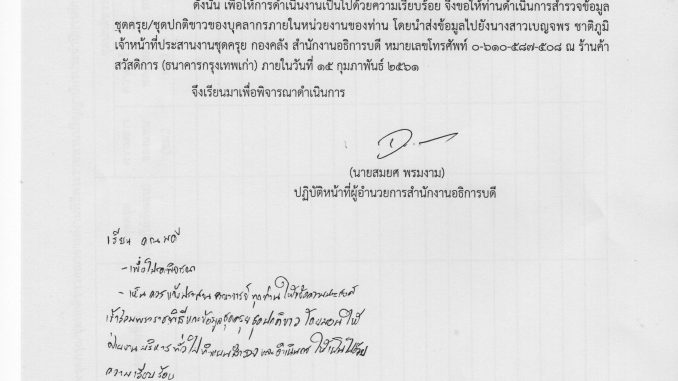 ดังนั้น เพื่อให้การดำเนินงานเป็นไปด้วยความเรียบร้อย จึงขอให้ท่านดำเนินการสำรวจข้อมูล
ชุดครุย/ชุดปกติขาวของบุคลากรภายในหน่วยงานของท่าน โดยนำส่งข้อมูลไปยังนางสาวเบญจพร ชาติภูมิ
เจ้าหน้าที่ประสานงานชุดครุย กองคลัง สำนักงานอธิการบดี หมายเลขโทรศัพท์ ๐-๖๑๐-๕๘๗-๕๐๘ ณ ร้านค้า
สวัสดิการ (ธนาคารกรุงเทพเก่า) ภายในวันที่ ๑๕ กุมภาพันธ์ ๒๕๖๑
จึงเรียนมาเพื่อพิจารณาดำเนินการ
(นายสมยศ พรมงาม)
ปฏิบัติหน้าที่ผู้อำนวยการสำนักงานอธิการบดี
เรียน คณบดี
- เพื่อโปรดพิจารณา
- เห็นควรแจ้ง คณาจารย์ทุกท่าน
ข้อมูลชุดครุย ชุดปกติขาว โดยมอบให้
งานบริหารทั่วไป และดำเนินการ ให้เป็นไปด้วย
ความเรียบร้อย